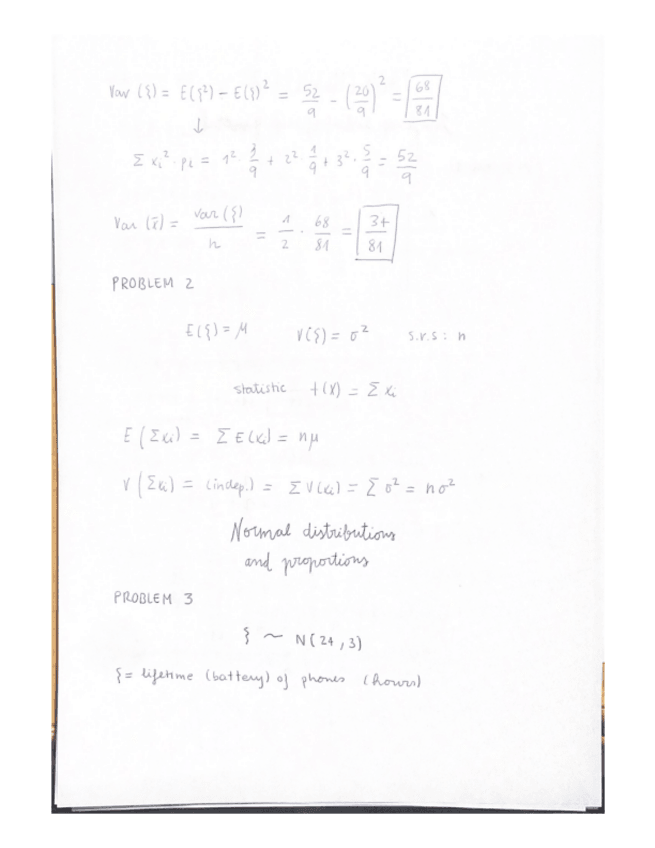 Var (ξ) = E(ξ²) - E(ξ)² = 52/9 - (20/9)² = 68/81
↓
Σ xi² · pi = 1² · 3/9 + 2² · 1/9 + 3² · 5/9 = 52/9
Var (x̄) = Var (ξ)/n = 1/2 · 68/81 = 34/81
PROBLEM 2
E(ξ) = μ V(ξ) = σ² s.r.s: n
statistic t(x) = Σ xi
E (Σxi) = Σ E(xi) = nμ
V (Σxi) = (indep.) = Σ V(xi) = Σ σ² = nσ²
Normal distributions
and proportions
PROBLEM 3
ξ ~ N(24,3)
ξ = lifetime (battery) of phones (hours)